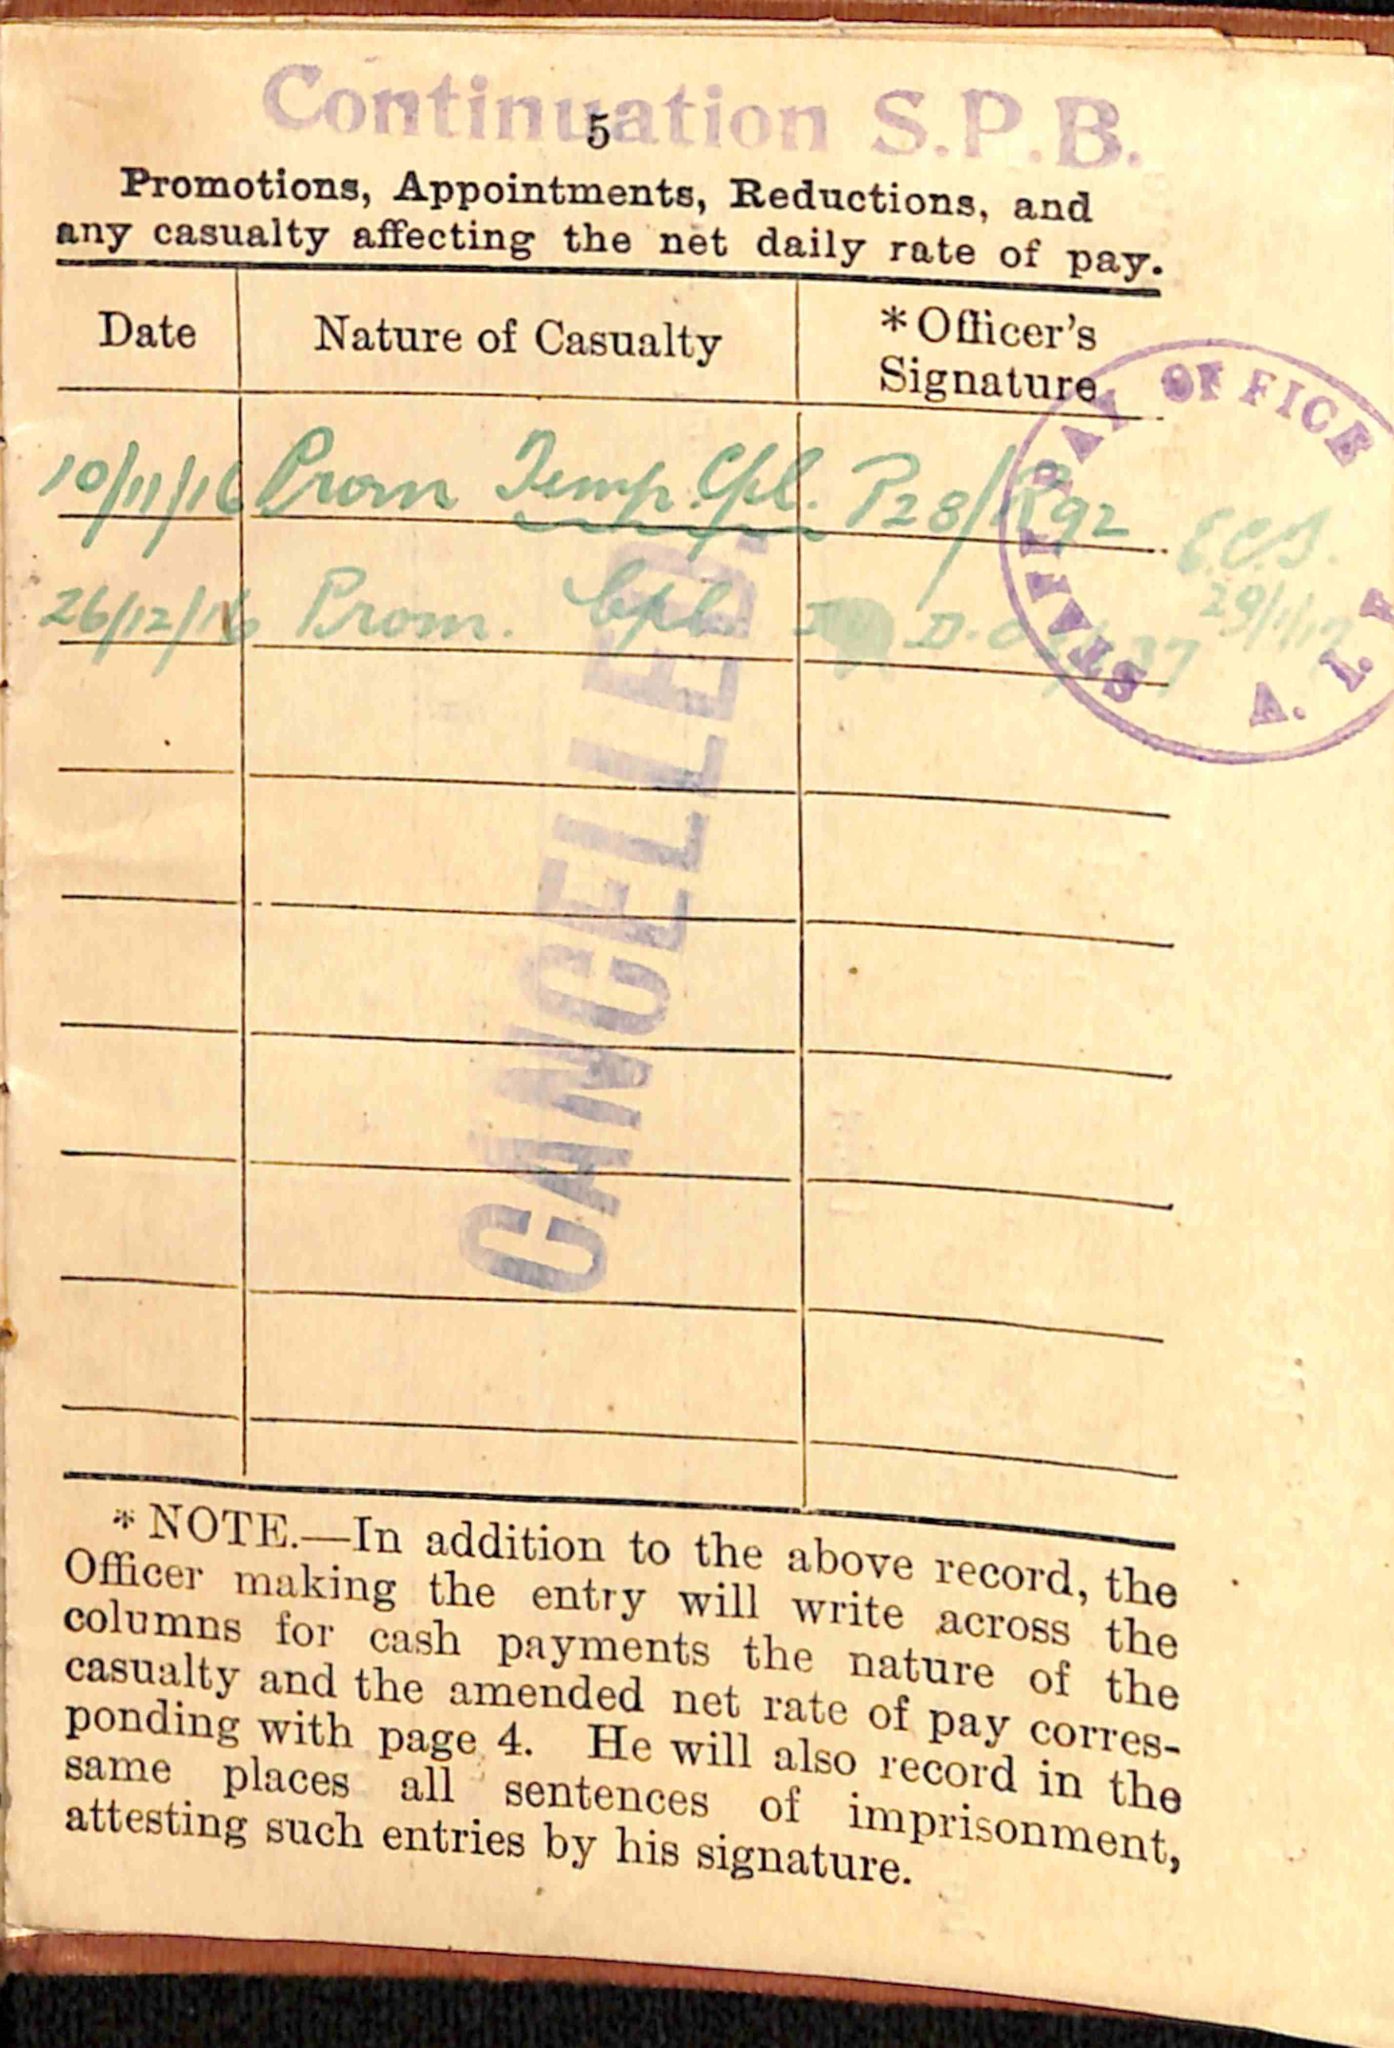 Continuation S.P.B.
5
Promotions, Appointments, Reductions, and
any casualty affecting the net daily rate of pay.
Date Nature of Casualty *Officer's
Signature
STAFF PAY OFFICE A.I.F.
10/11/16 Prom Temp. Cpl. P28/R92 E.C.S.
29/1/17
26/12/16 Prom. Cpl D.O. 37
CANCELLED.
*NOTE.—In addition to the above record, the
Officer making the entry will write across the
columns for cash payments the nature of the
casualty and the amended net rate of pay corres-
ponding with page 4. He will also record in the
same places all sentences of imprisonment,
attesting such entries by his signature.